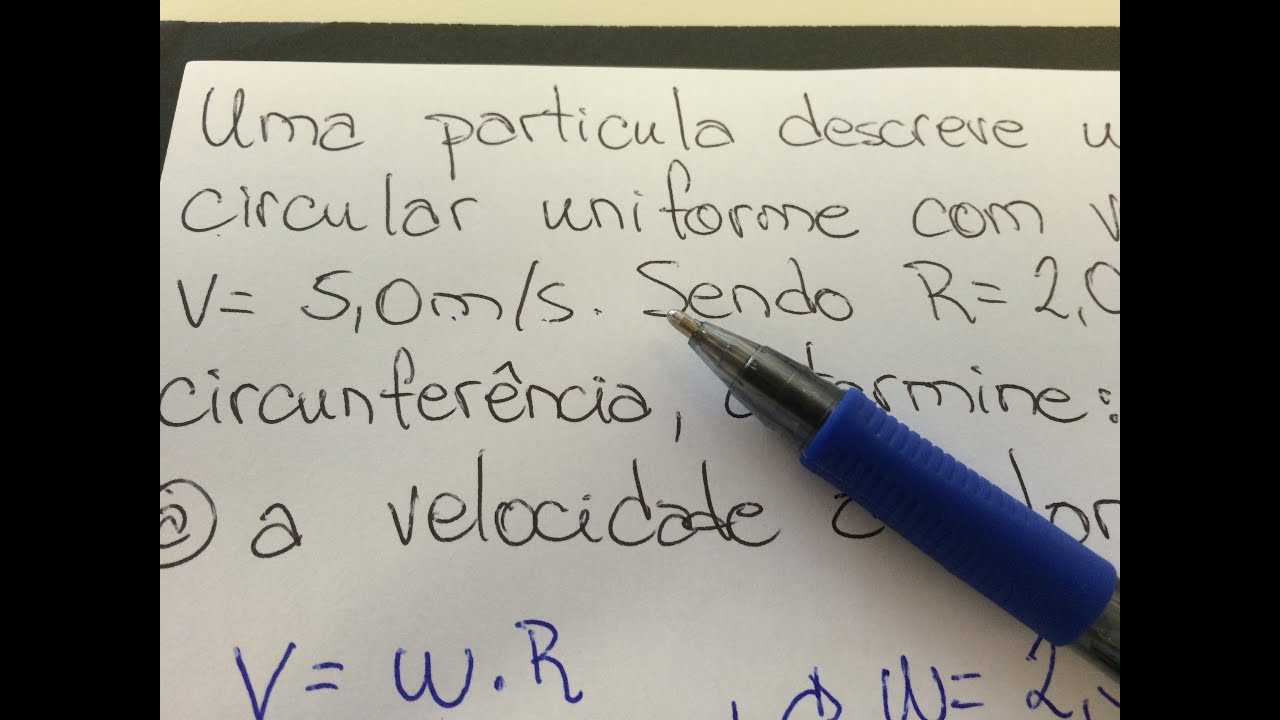 Uma particula descreve u
circular uniforme com v
V= 5,0m/s. Sendo R= 2,0
circunferência, determine:
a a velocidade
V= W.R W= 2,